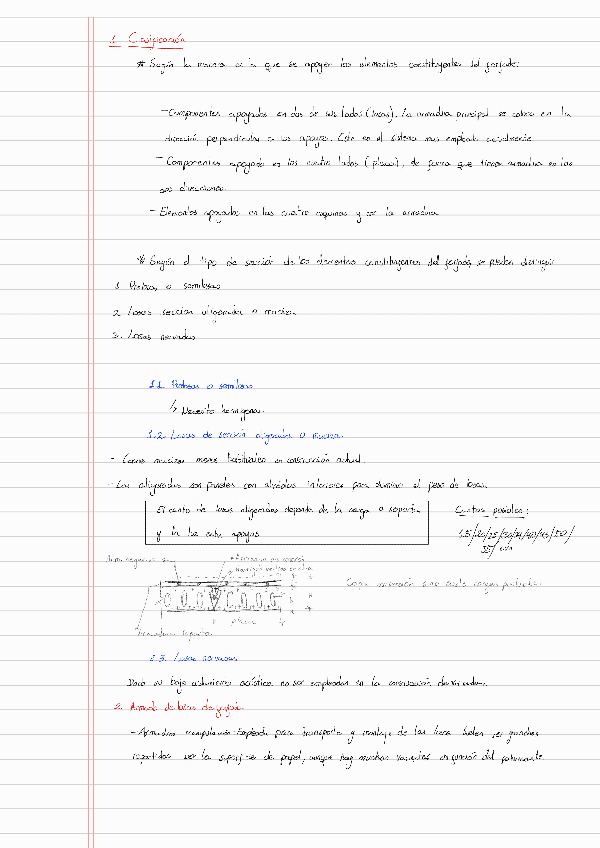 1. Clasificación
* Según la manera en la que se apoyen los elementos constituyentes del forjado:
- Componentes apoyados en dos de sus lados (losas). La armadura principal se coloca en la
dirección perpendicular a los apoyos. Este es el sistema mas empleado
- Componentes apoyado en los cuatro lados (placas), de forma que tienen armadura en las
dos direcciones.
- Elementos apoyados en las cuatro esquinas y con la armadura
* Según el tipo de sección de los elementos constituyentes del forjado, se pueden distinguir
1. Prelosas o semilosas
2. Losas sección aligerada o maciza.
3. Losas nervadas
1.1. Prelosas o semilosas
↳ Necesita hormigonar.
1.2. Losas de sección aligerada o maciza.
- Losas macizas menos habituales en construcción actual.
- Las aligeradas son paneles con alveolos interiores para disminuir el peso de losas.
El canto de losas aligeradas depende de la carga a soportar
y la luz entre apoyos
Cantos posibles:
15/20/25/30/34/40/45/50/
cm
Arm. negativos
Armadura
placa
Losas nervadas
Dado su bajo aislamiento acústico no son empleadas en la construcción de viviendas.
2. Armado de losas de forjado
- Armadura manipulación: Empleada para transporte y montaje de las losas. Suelen ser ganchos
repartidos por la superficie de papel, aunque hay muchas variantes en función del fabricante